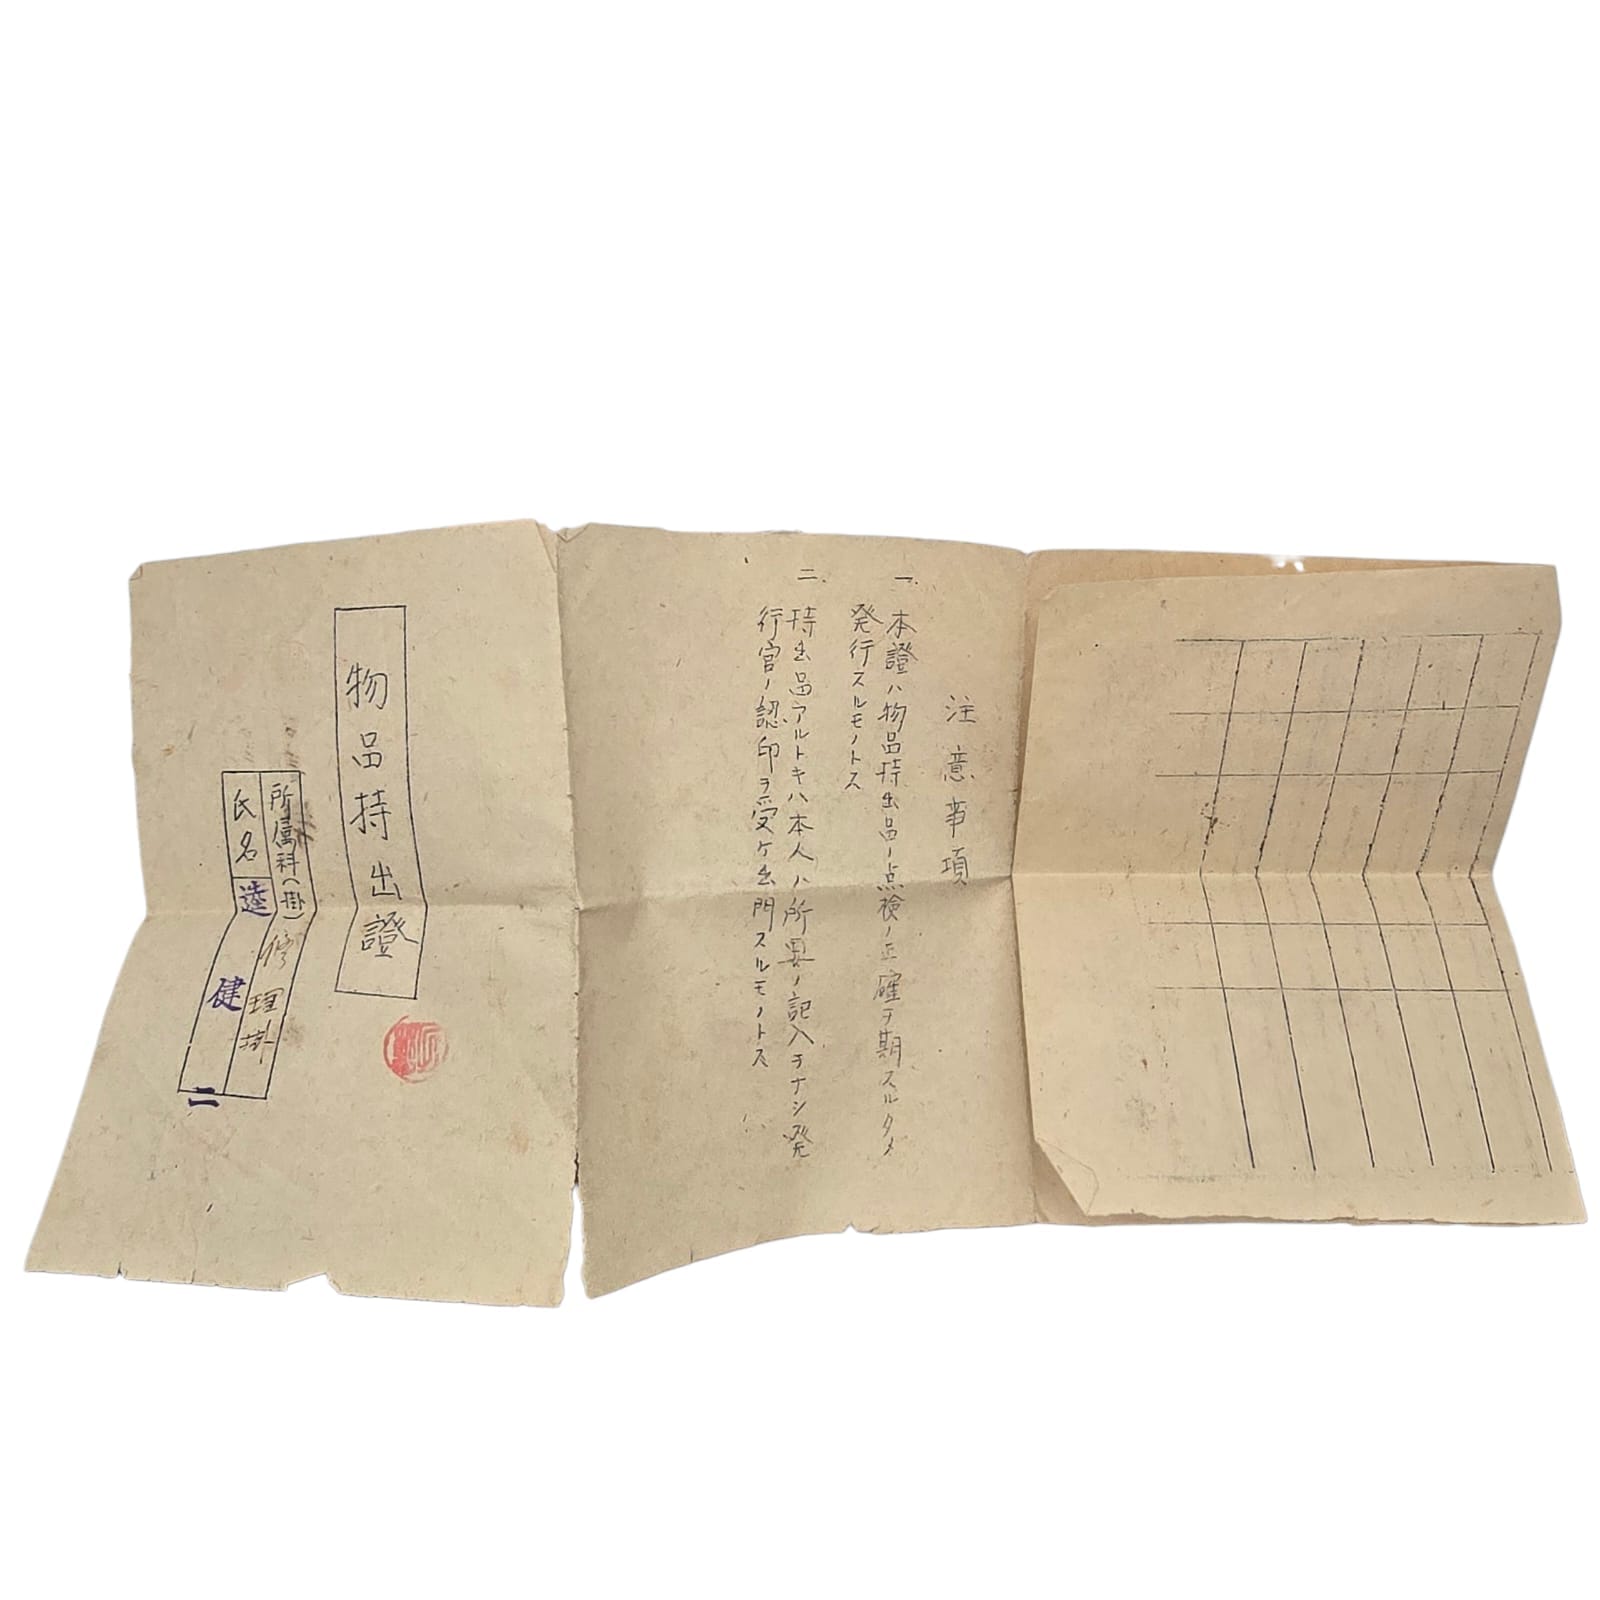 注意事項
一、本證ハ物品持出品ノ点検ノ正確ヲ期スルタメ
発行スルモノトス
二、持出品アルトキハ本人ハ所要ノ記入ヲナシ発
行官ノ認印ヲ受ケ出門スルモノトス
物品持出證
所属科(掛) 修理掛
氏名 逵健二